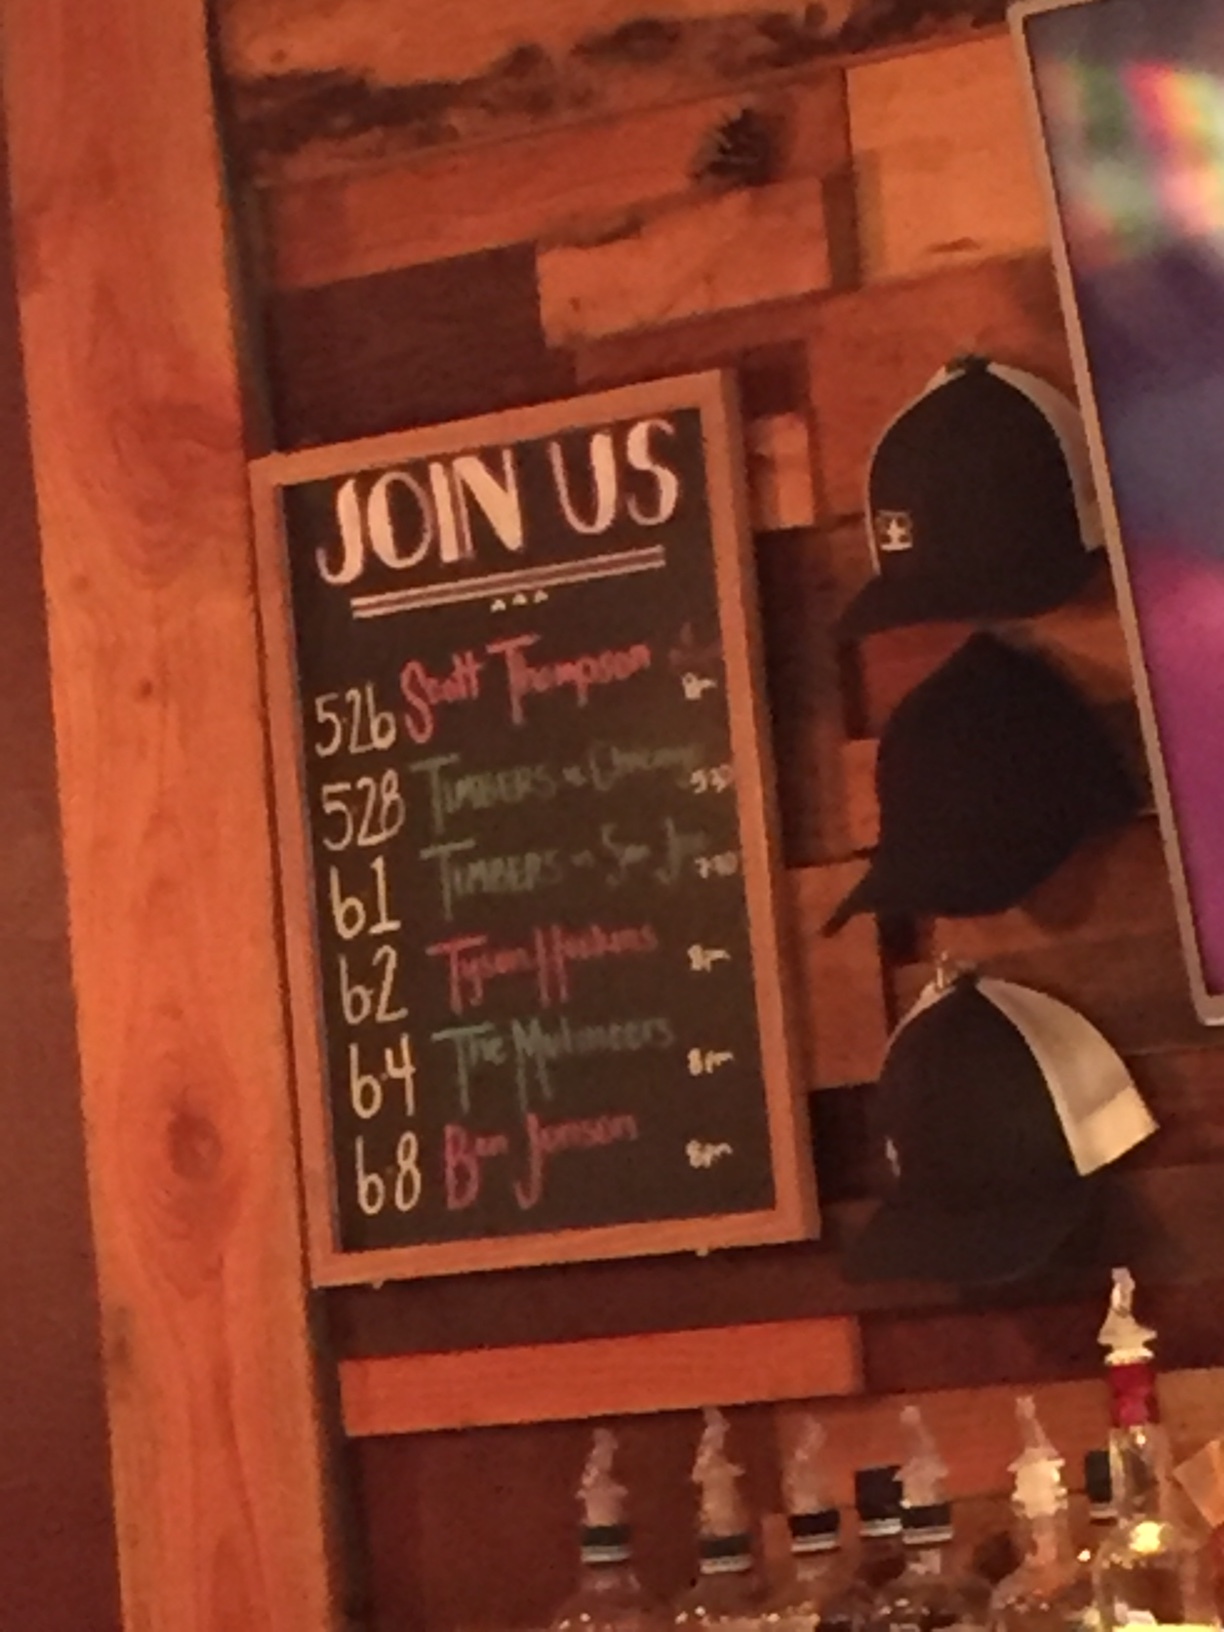 JOIN US
5·26 Scott Thompson 8pm
5·28 TIMBERS vs Chicago 5:30
6·1 TIMBERS vs San Jose 7:30
6·2 Tyson Huckins 8pm
6·4 The Muleineers 8pm
6·8 Ben Jonson 8pm